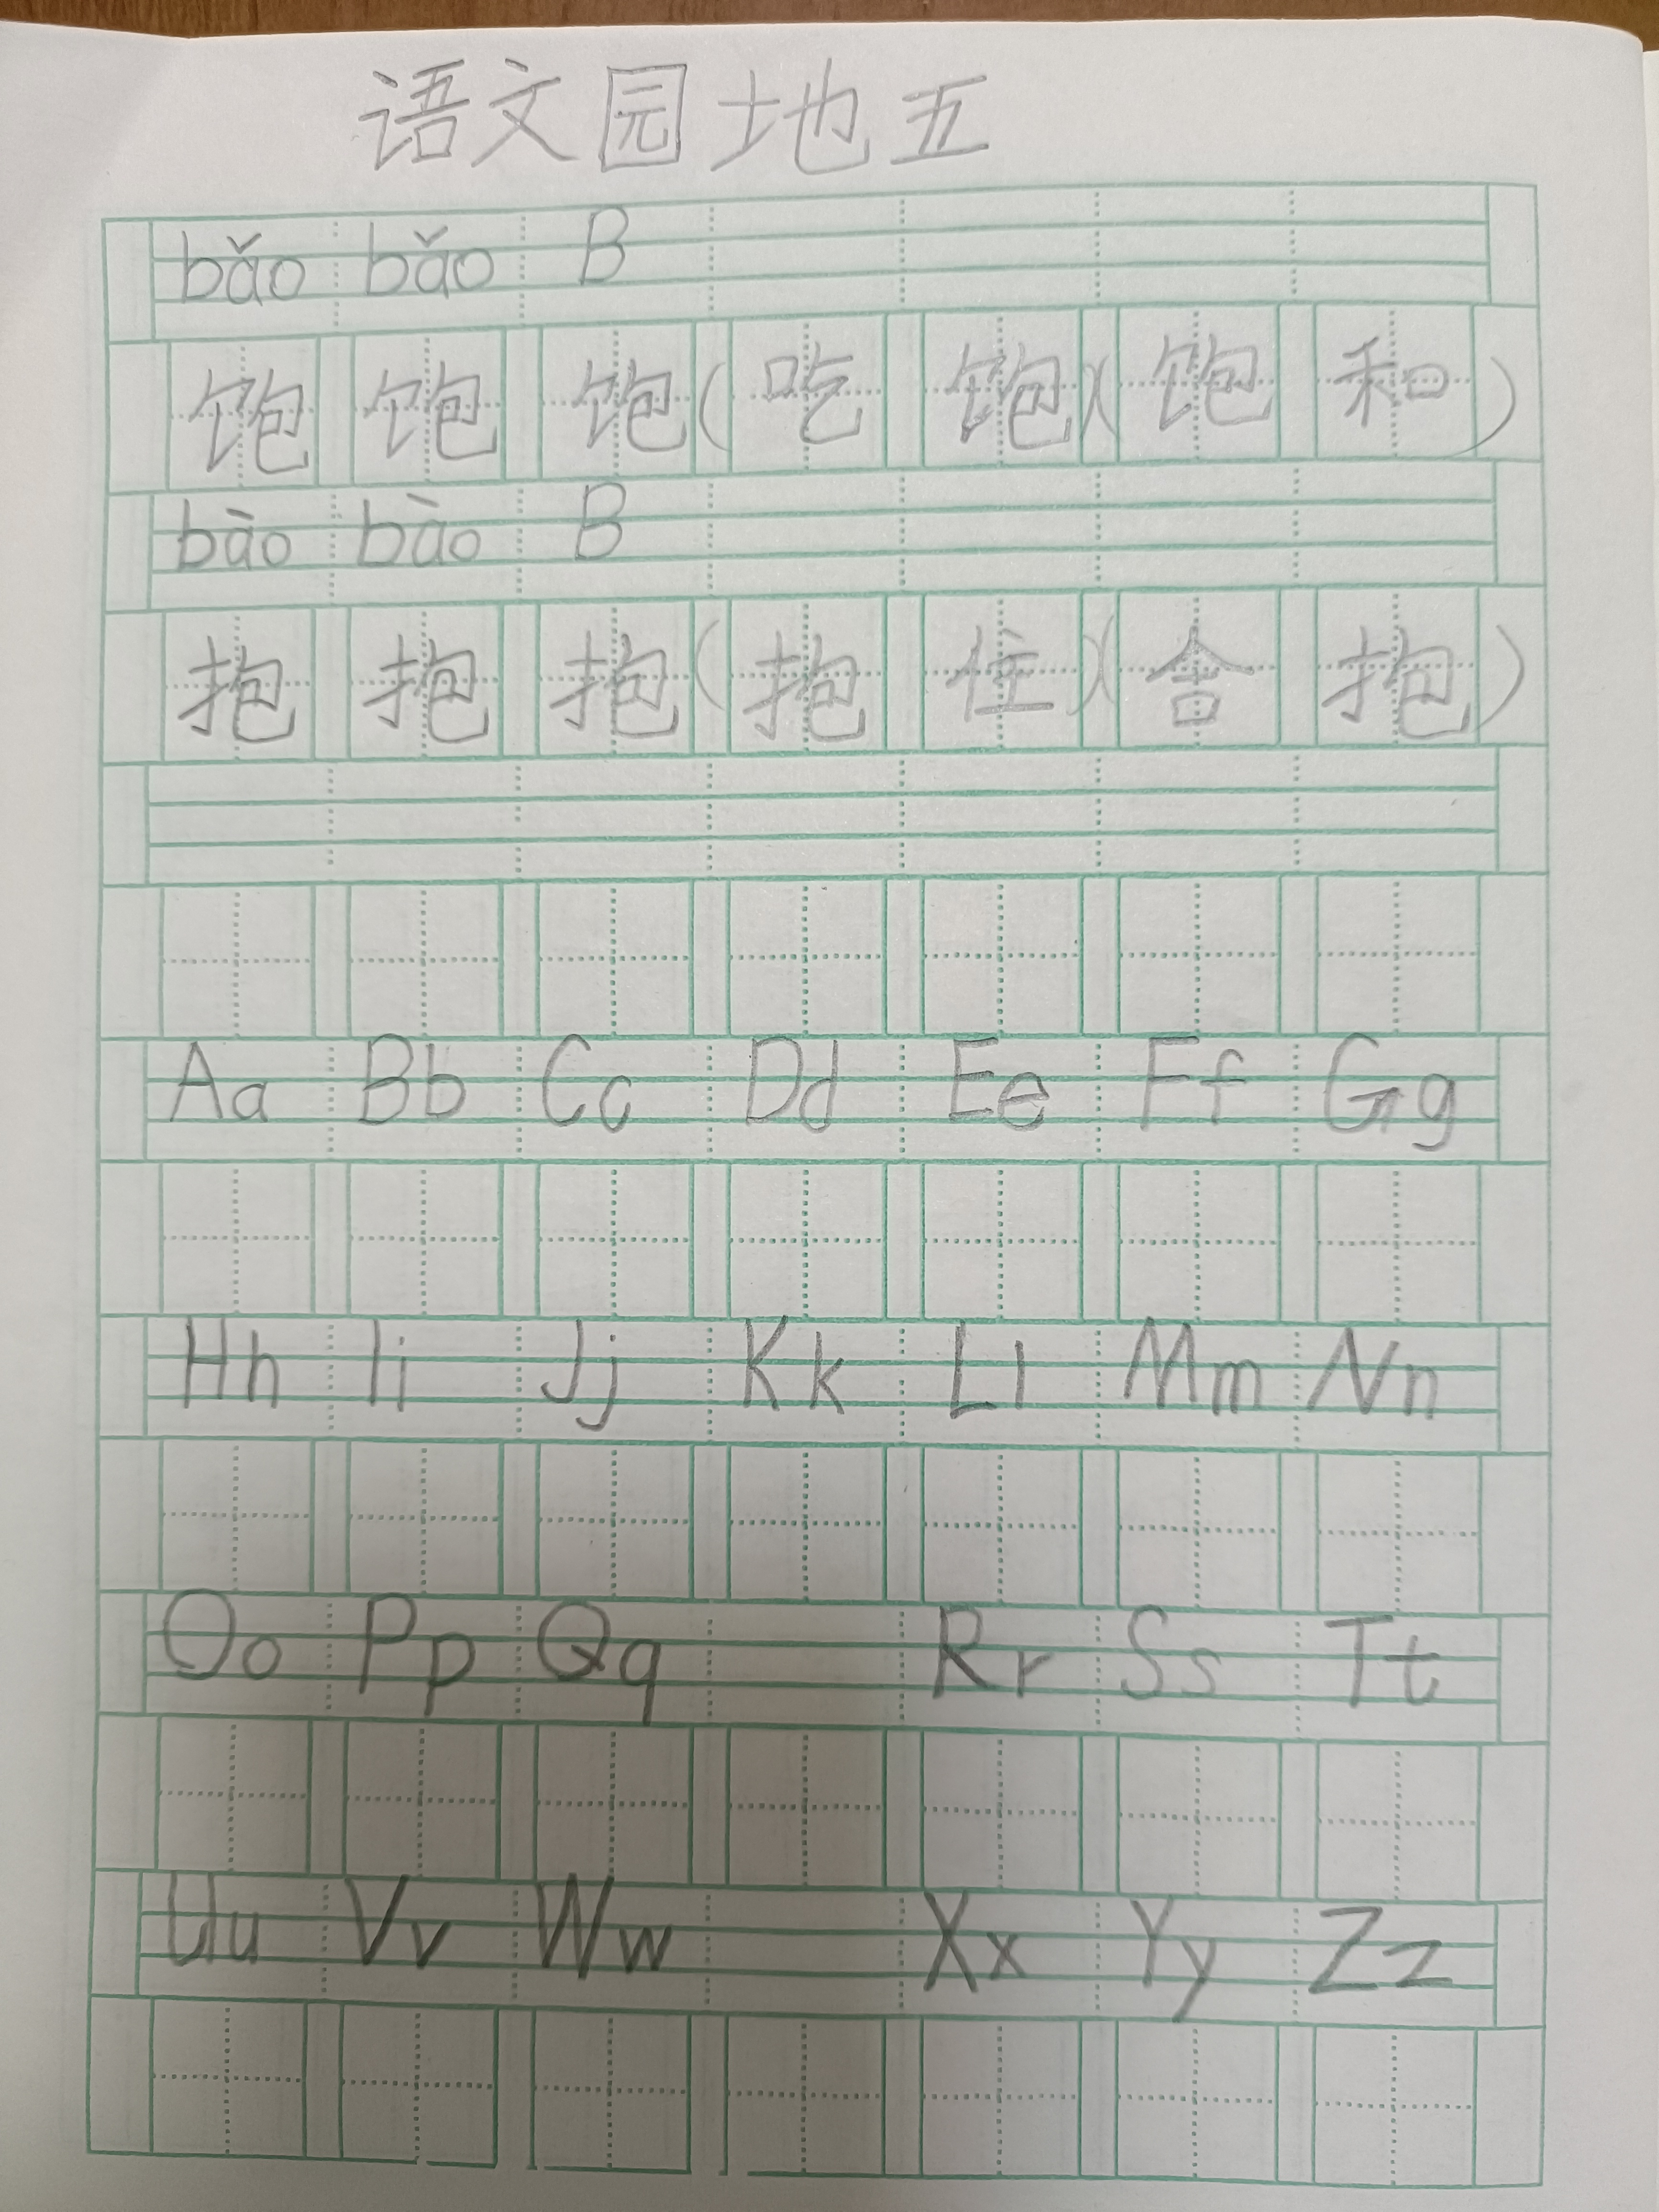 语文园地五
bǎo bǎo B
饱 饱 饱(吃饱)(饱和)
bào bào B
抱 抱 抱(抱住)(舍抱)
Aa Bb Cc Dd Ee Ff Gg
Hh Ii Jj Kk Ll Mm Nn
Oo Pp Qq Rr Ss Tt
Uu Vv Ww Xx Yy Zz